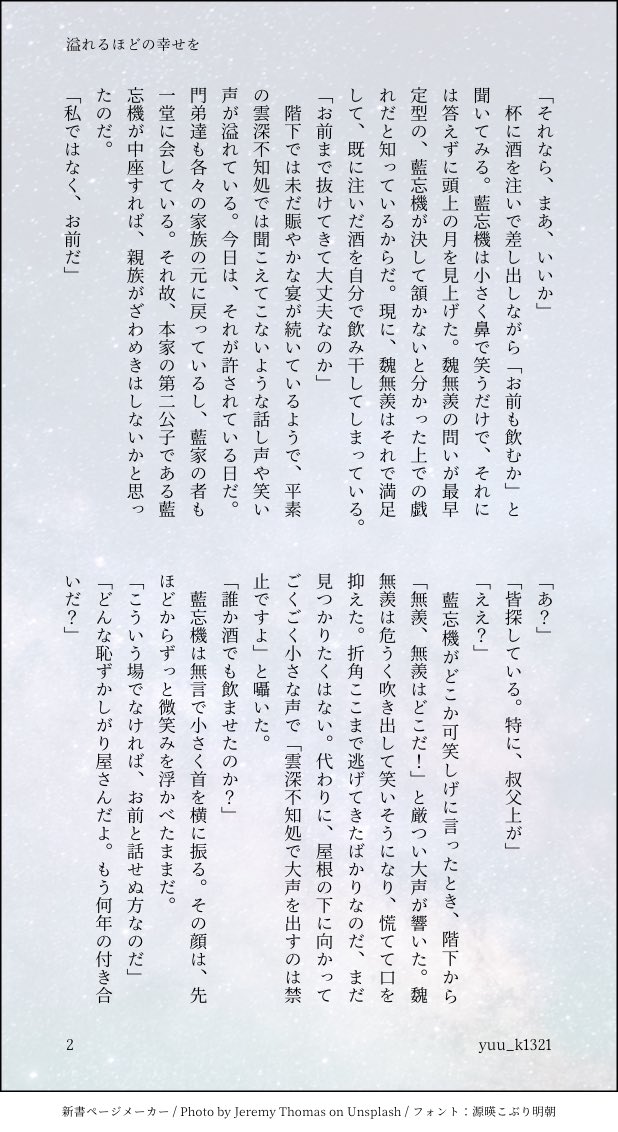 溢れるほどの幸せを
「それなら、まあ、いいか」
　杯に酒を注いで差し出しながら「お前も飲むか」と
聞いてみる。藍忘機は小さく鼻で笑うだけで、それに
は答えずに頭上の月を見上げた。魏無羨の問いが最早
定型の、藍忘機が決して頷かないと分かった上での戯
れだと知っているからだ。現に、魏無羨はそれで満足
して、既に注いだ酒を自分で飲み干してしまっている。
「お前まで抜けてきて大丈夫なのか」
　階下では未だ賑やかな宴が続いているようで、平素
の雲深不知処では聞こえてこないような話し声や笑い
声が溢れている。今日は、それが許されている日だ。
門弟達も各々の家族の元に戻っているし、藍家の者も
一堂に会している。それ故、本家の第二公子である藍
忘機が中座すれば、親族がざわめきはしないかと思っ
たのだ。
「私ではなく、お前だ」
「あ？」
「皆探している。特に、叔父上が」
「ええ？」
　藍忘機がどこか可笑しげに言ったとき、階下から
「無羨、無羨はどこだ！」と厳つい大声が響いた。魏
無羨は危うく吹き出して笑いそうになり、慌てて口を
抑えた。折角ここまで逃げてきたばかりなのだ、まだ
見つかりたくはない。代わりに、屋根の下に向かって
ごくごく小さな声で「雲深不知処で大声を出すのは禁
止ですよ」と囁いた。
「誰か酒でも飲ませたのか？」
　藍忘機は無言で小さく首を横に振る。その顔は、先
ほどからずっと微笑みを浮かべたままだ。
「こういう場でなければ、お前と話せぬ方なのだ」
「どんな恥ずかしがり屋さんだよ。もう何年の付き合
いだ？」
2
yuu_k1321
新書ページメーカー / Photo by Jeremy Thomas on Unsplash / フォント：源暎こぶり明朝